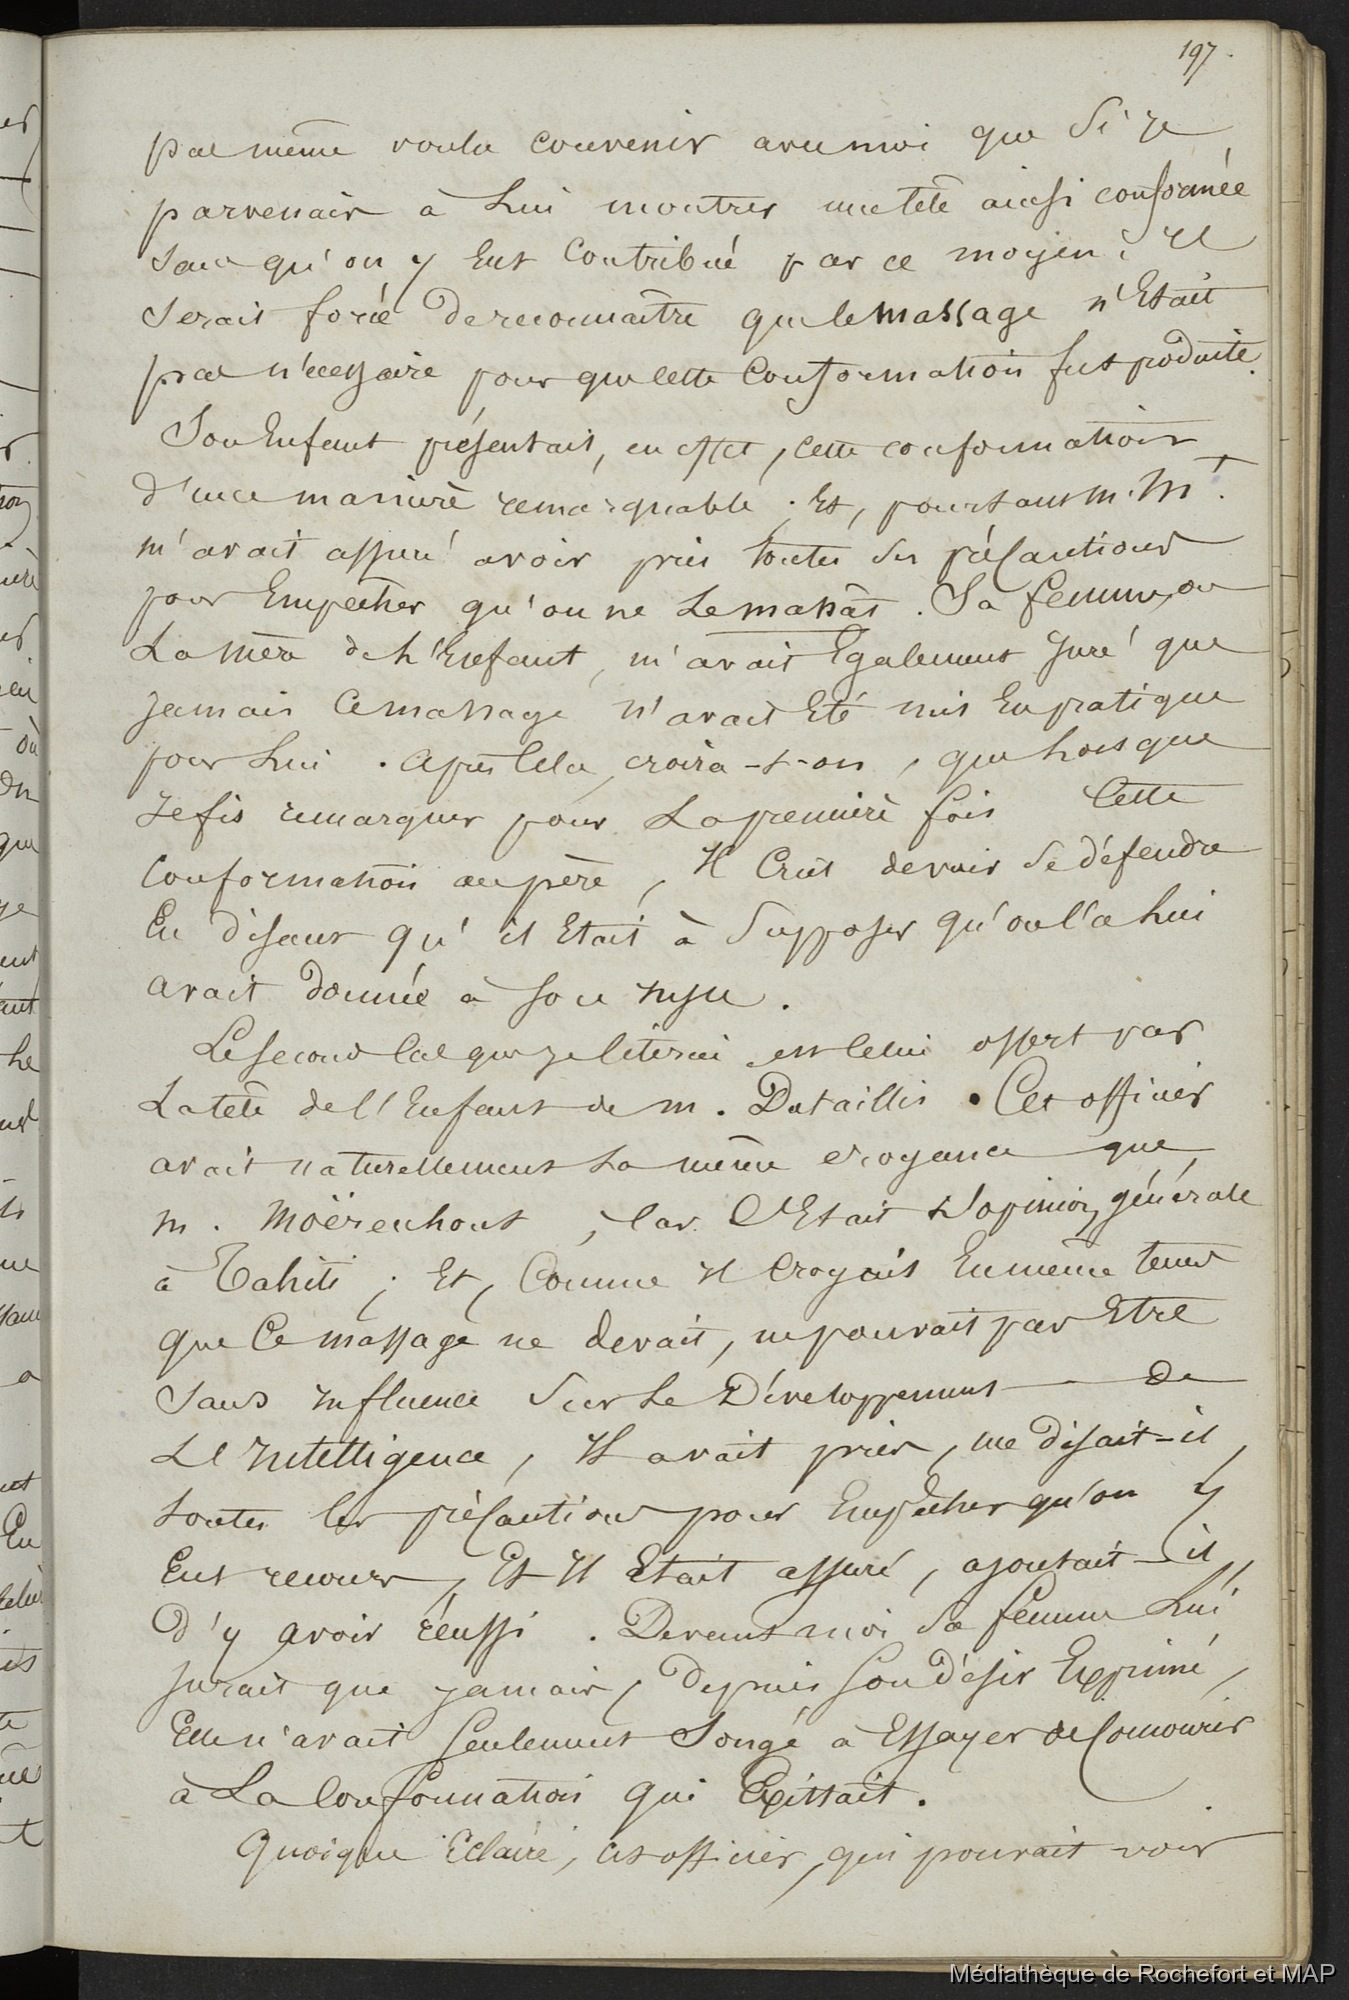 197.
pas même voulu convenir avec moi que si je
parvenais à lui montrer une tête ainsi conformée
sans qu'on y eut contribué par ce moyen, il
serait forcé de reconnaître que le massage n'était
pas nécessaire pour que cette conformation fut produite.
Son enfant présentait, en effet, cette conformation
d'une manière remarquable ; et, pourtant m. M<sup>t</sup>.
m'avait assuré avoir pris toutes ses précautions
pour empêcher qu'on ne le massât. Sa femme, ou
la mère de l'enfant, m'avait également juré que
jamais ce massage n'avait été mis en pratique
pour lui. Après cela, croira-t-on, que lorsque
je fis remarquer pour la première fois cette
conformation au père, il crut devoir se défendre
en disant qu'il était à supposer qu'on l'a lui
avait donnée à son insu.
Le second cas que je citerai est celui offert par
la tête de l'enfant de m. Dutaillis. Cet officier
avait naturellement la même croyance que
m. Moërenhout, car c'était l'opinion générale
à Tahiti ; et, comme il croyait en même tems
que ce massage ne devait, ne pouvait pas être
sans influence sur le développement de
l'intelligence, il avait pris, me disait-il,
toutes les précautions pour empêcher qu'on y
eut recours, et il était assuré, ajoutait-il,
d'y avoir réussi. Devant moi sa femme lui
jurait que jamais, depuis son désir exprimé,
elle n'avait seulement songé à essayer de concourir
à la conformation qui existait.
Quoique éclairé, cet officier, qui pouvait voir
Médiathèque de Rochefort et MAP